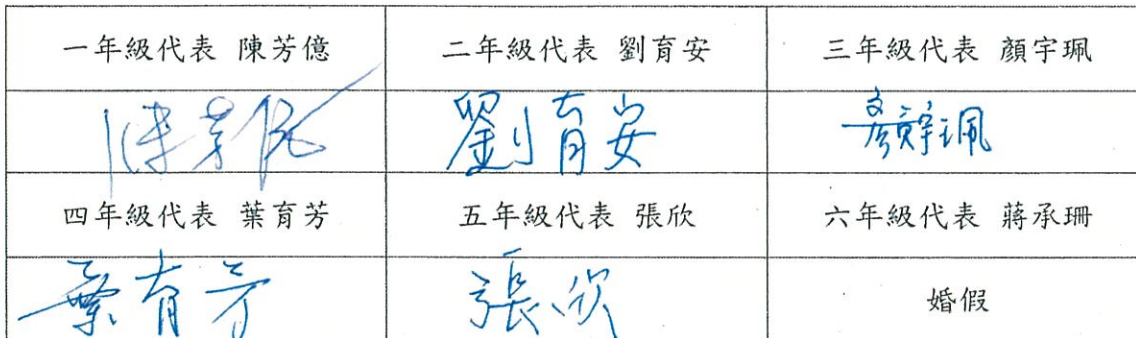 一年級代表 陳芳億 二年級代表 劉育安 三年級代表 顏宇珮
陳芳億 劉育安 顏宇珮
四年級代表 葉育芳 五年級代表 張欣 六年級代表 蔣承珊
葉育芳 張欣 婚假